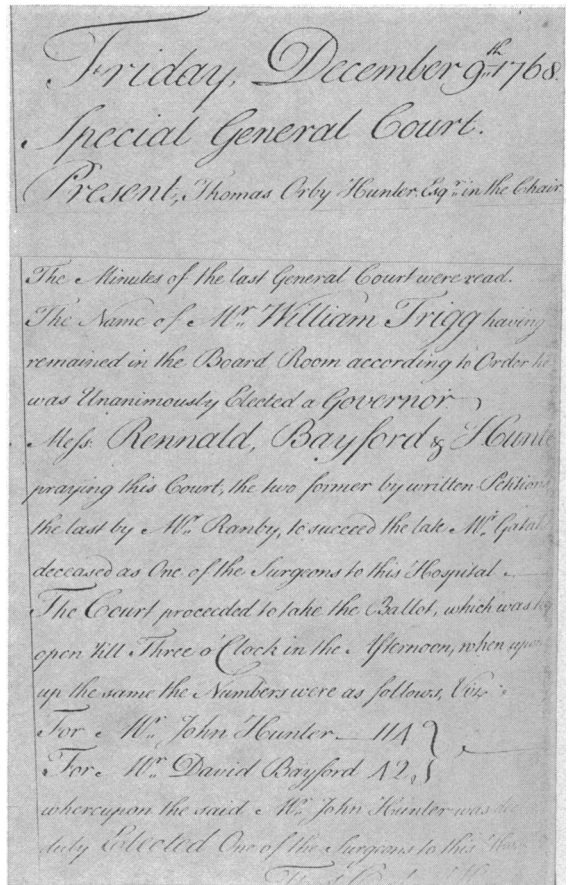 Friday, December 9th 1768.
Special General Court.
Present, Thomas Orby Hunter Esqr. in the Chair
The Minutes of the last General Court were read.
The Name of Mr. William Trigg having
remained in the Board Room according to Order he
was Unanimously Elected a Governor.
Mess. Rennald, Bayford & Hunte
praying this Court, the two former by written Petitions
the last by Mr. Ranby, to succeed the late Mr. Gatak
deceased as One of the Surgeons to this Hospital
The Court proceeded to take the Ballot, which was
open till Three o'Clock in the Afternoon, when upon
up the same the Numbers were as follows, Viz.
For Mr. John Hunter 114
For Mr. David Bayford 42
whereupon the said Mr. John Hunter was
duly Elected One of the Surgeons to this